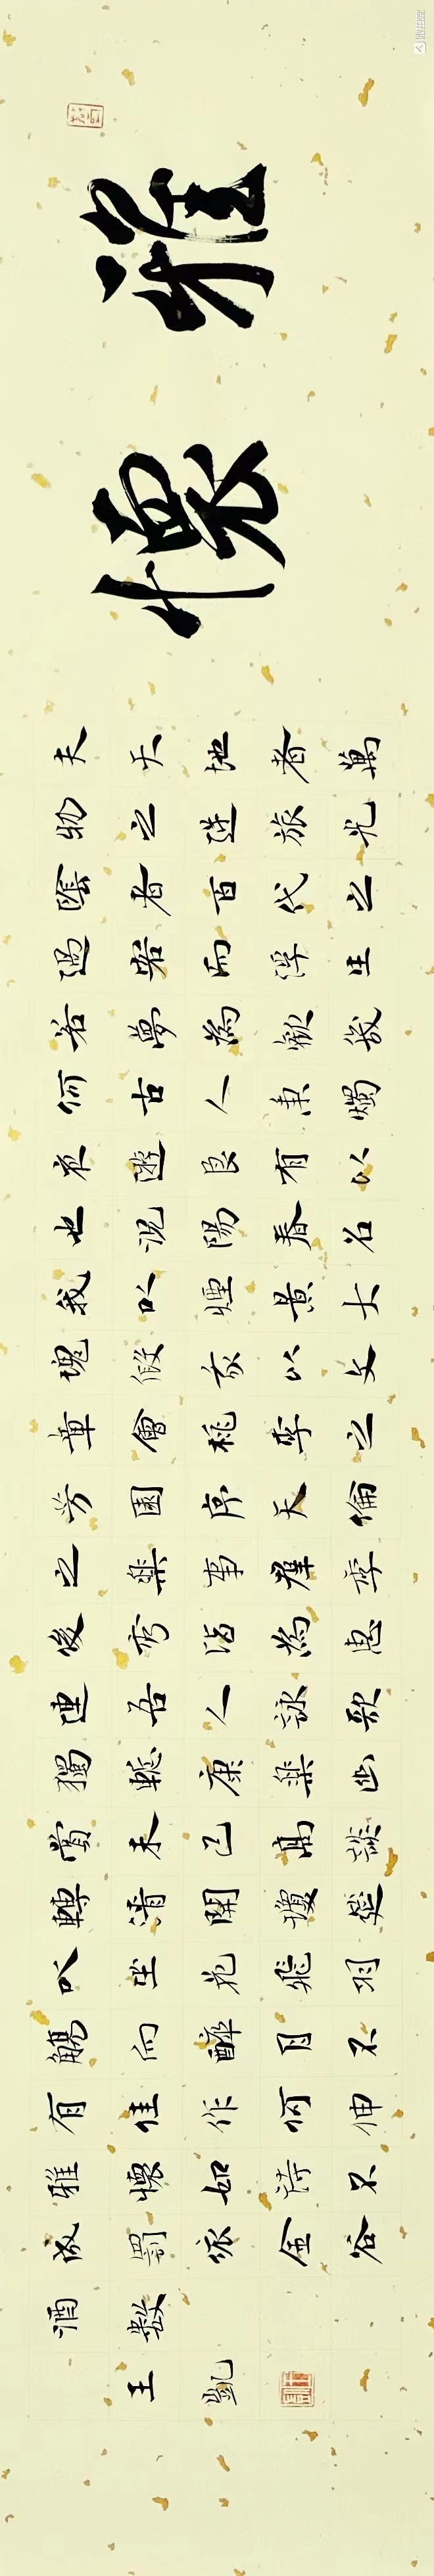 雅懷
夫天地者萬
物之逆旅光
陰者百代之
過客而浮生
若夢為歡幾
何古人秉燭
夜遊良有以
也況陽春召
我以煙景大
塊假我以文
章會桃李之
芳園序天倫
之樂事群季
俊秀皆為惠
連吾人詠歌
獨慚康樂幽
賞未已高談
轉清開瓊筵
以坐花飛羽
觴而醉月不
有佳作何伸
雅懷如詩不
成罰依金谷
酒數
王凱
微拍堂